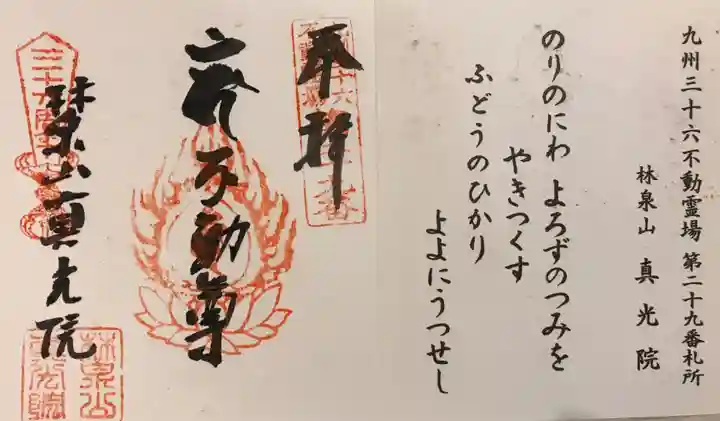 九州三十六不動霊場 第二十九番札所
林泉山 真光院
のりのにわ よろずのつみを
やきつくす
ふどうのひかり
よよにうつせし
奉拝
不動尊
林泉山真光院
林泉山
真光院